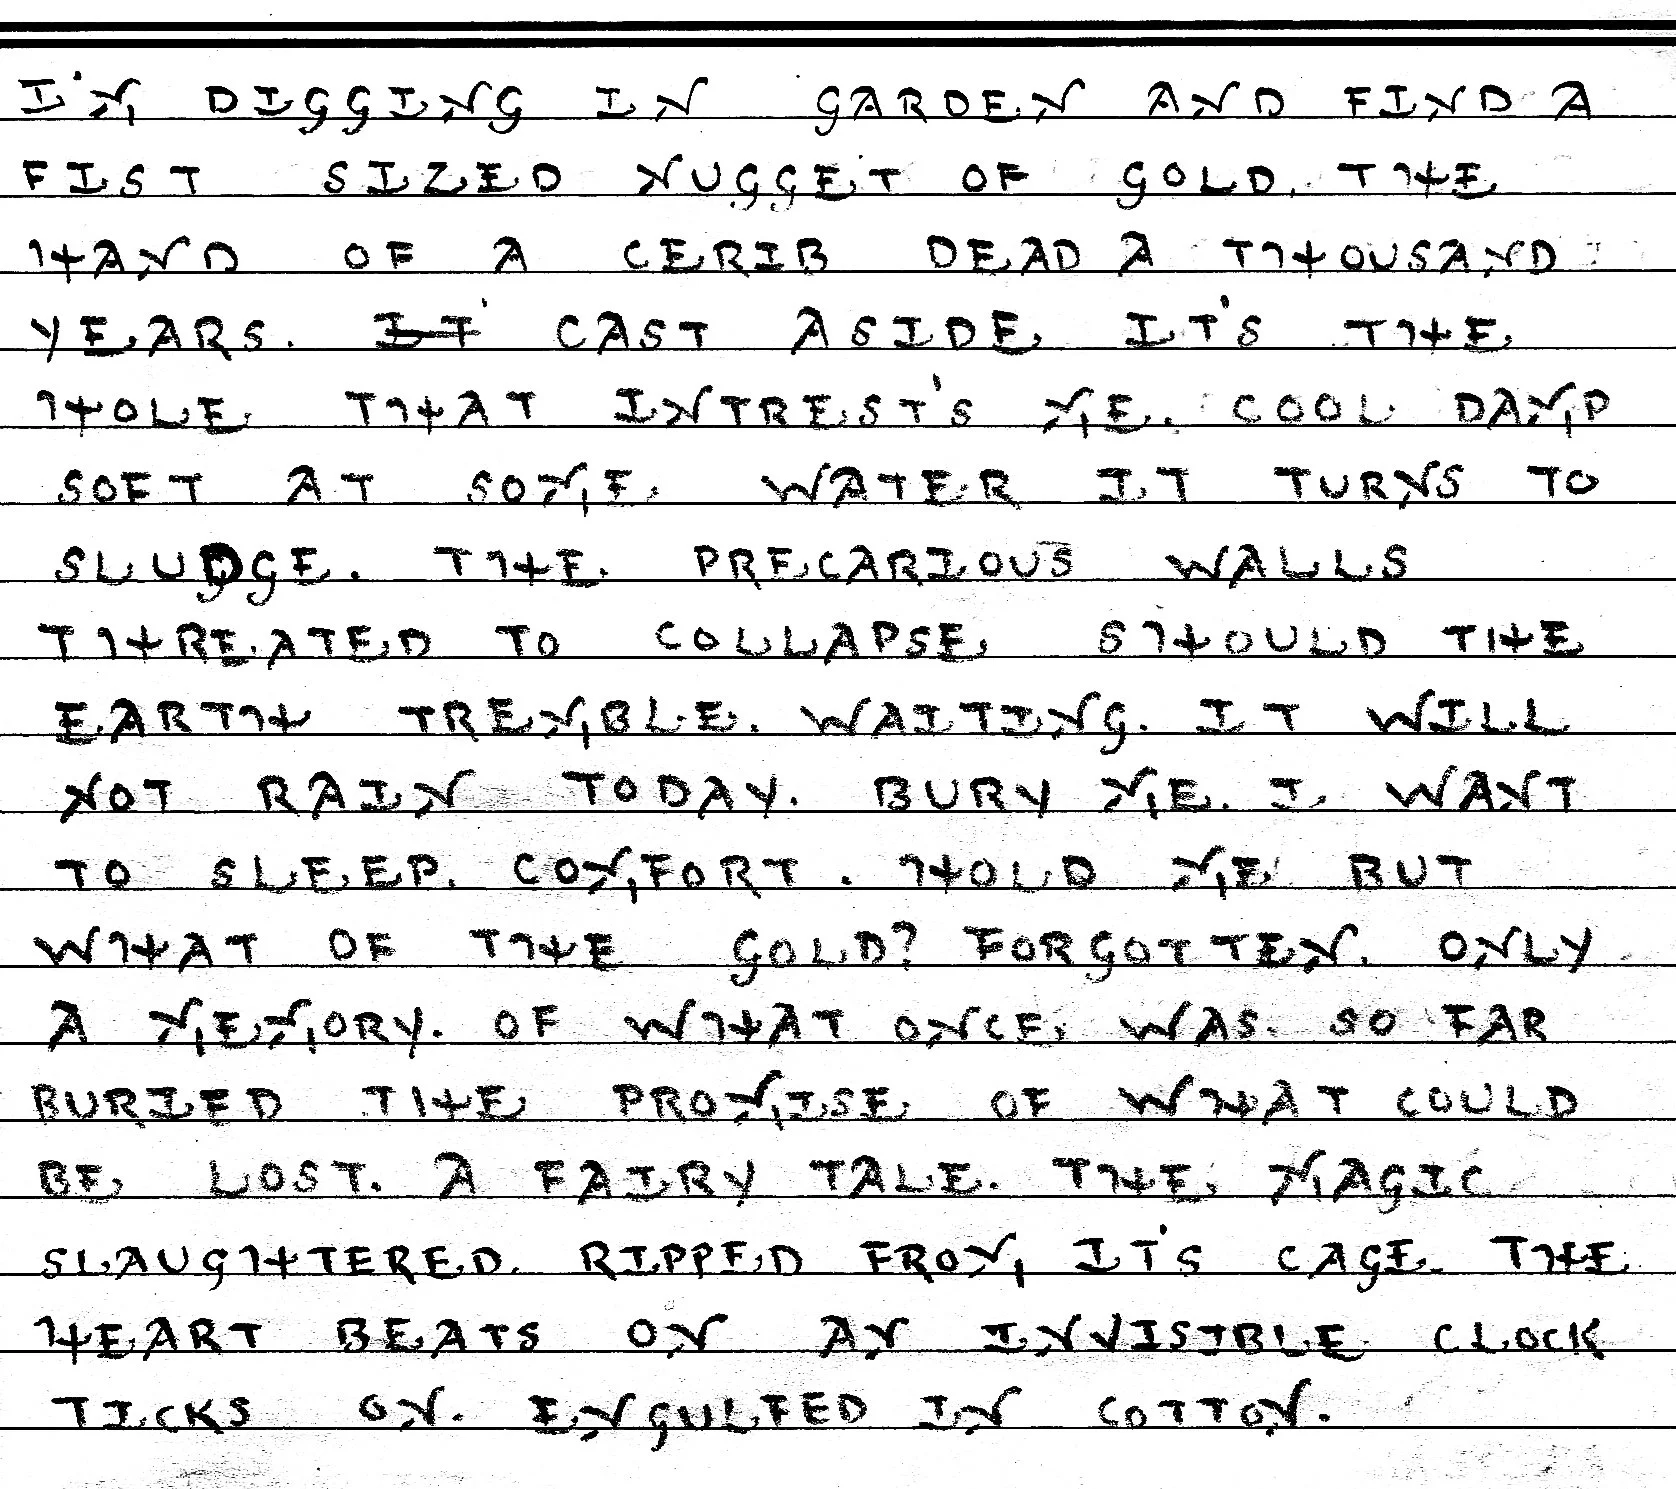 I'M DIGGING IN GARDEN AND FIND A
FIST SIZED NUGGET OF GOLD. THE
HAND OF A CERIB DEAD A THOUSAND
YEARS. IT' CAST ASIDE IT'S THE
HOLE THAT INTREST'S ME. COOL DAMP
SOFT AT SOME WATER IT TURNS TO
SLUDGE. THE PRECARIOUS WALLS
THREATED TO COLLAPSE SHOULD THE
EARTH TREMBLE. WAITING. IT WILL
NOT RAIN TODAY. BURY ME. I WANT
TO SLEEP. COMFORT. HOLD ME BUT
WHAT OF THE GOLD? FORGOTTEN. ONLY
A MEMORY. OF WHAT ONCE WAS. SO FAR
BURIED THE PROMISE OF WHAT COULD
BE LOST. A FAIRY TALE. THE MAGIC
SLAUGHTERED. RIPPED FROM IT'S CAGE. THE
HEART BEATS ON AN INVISIBLE CLOCK
TICKS ON. ENGULFED IN COTTON.